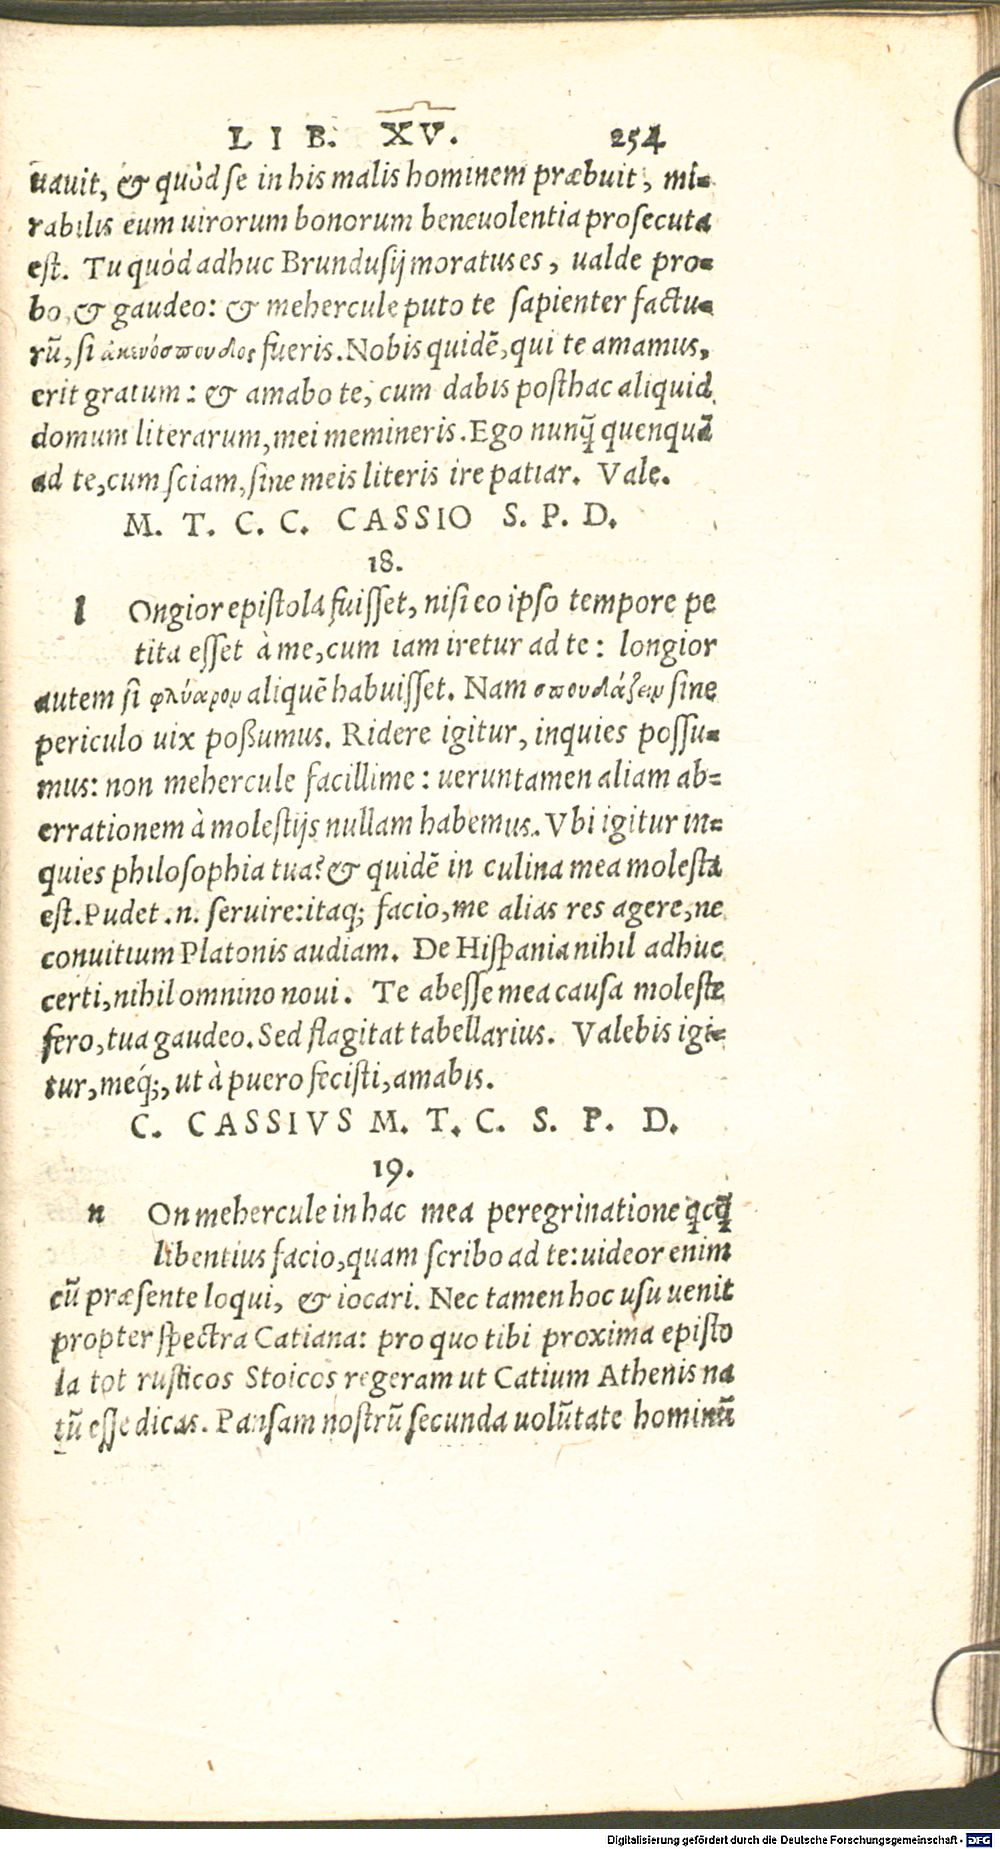 LIB. XV. 254
uauit, & quòd se in his malis hominem præbuit, mi-
rabilis eum uirorum bonorum beneuolentia prosecuta
est. Tu quòd adhuc Brundusij moratus es, ualde pro-
bo, & gaudeo: & mehercule puto te sapienter factu-
rũ, si ἀκενόσπουδος fueris. Nobis quidẽ, qui te amamus,
erit gratum: & amabo te, cum dabis posthac aliquid
domum literarum, mei memineris. Ego nunq̃ quenquã
ad te, cum sciam, sine meis literis ire patiar. Vale.
M. T. C. C. CASSIO S. P. D.
18.
l Ongior epistola fuisset, nisi eo ipso tempore pe
tita esset à me, cum iam iretur ad te: longior
autem si φλύαρον aliquẽ habuisset. Nam σπουδάζειν sine
periculo uix poßumus. Ridere igitur, inquies possu-
mus: non mehercule facillime: ueruntamen aliam ab-
errationem à molestijs nullam habemus. Vbi igitur in-
quies philosophia tua? & quidẽ in culina mea molesta
est. Pudet .n. seruire: itaq; facio, me alias res agere, ne
conuitium Platonis audiam. De Hispania nihil adhuc
certi, nihil omnino noui. Te abesse mea causa moleste
fero, tua gaudeo. Sed flagitat tabellarius. Valebis igi-
tur, meq́;, ut à puero fecisti, amabis.
C. CASSIVS M. T. C. S. P. D.
19.
n On mehercule in hac mea peregrinatione q̃cq̃
libentius facio, quam scribo ad te: uideor enim
cũ præsente loqui, & iocari. Nec tamen hoc usu uenit
propter spectra Catiana: pro quo tibi proxima episto
la tot rusticos Stoicos regeram ut Catium Athenis na
tũ esse dicas. Pansam nostrũ secunda uolũtate hominũ
Digitalisierung gefördert durch die Deutsche Forschungsgemeinschaft - DFG